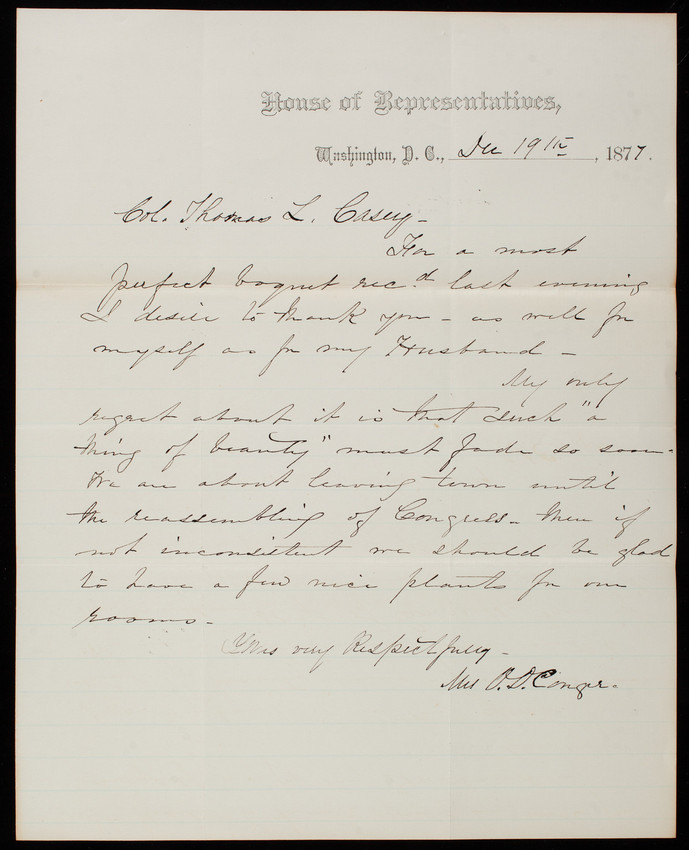 House of Representatives,
Washington, D. C., Dec 19th, 1877.
Col. Thomas L. Casey -
For a most
perfect boquet rec.d last evening
I desire to thank you - as well for
myself as for my Husband -
My only
regret about it is that such "a
thing of beauty" must fade so soon.
We are about leaving town until
the reassembling of Congress - then if
not inconsistent we should be glad
to have a few nice plants for our
rooms -
Yours very Respectfully -
Mrs O. D. Conger.